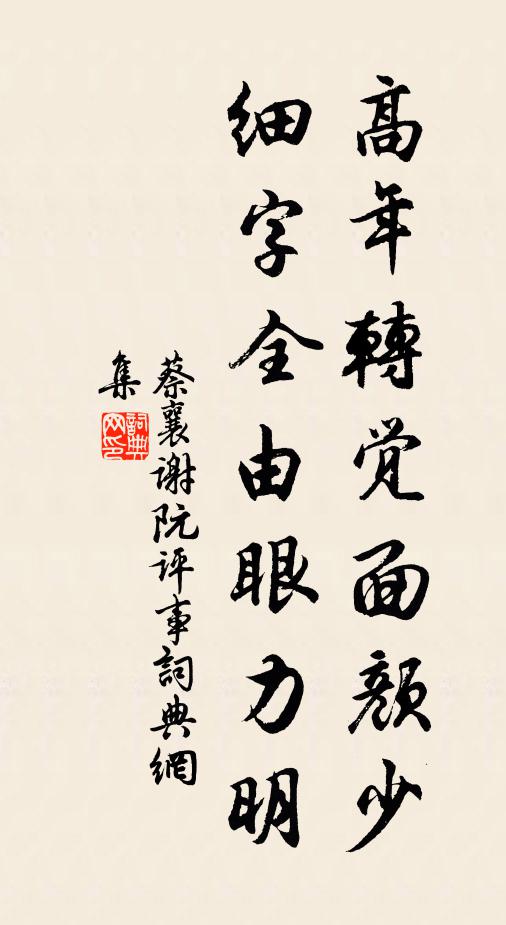 高年轉觉面颜少
细字全由眼力明
蔡襄谢阮评事詞典網
集
詞典
网印